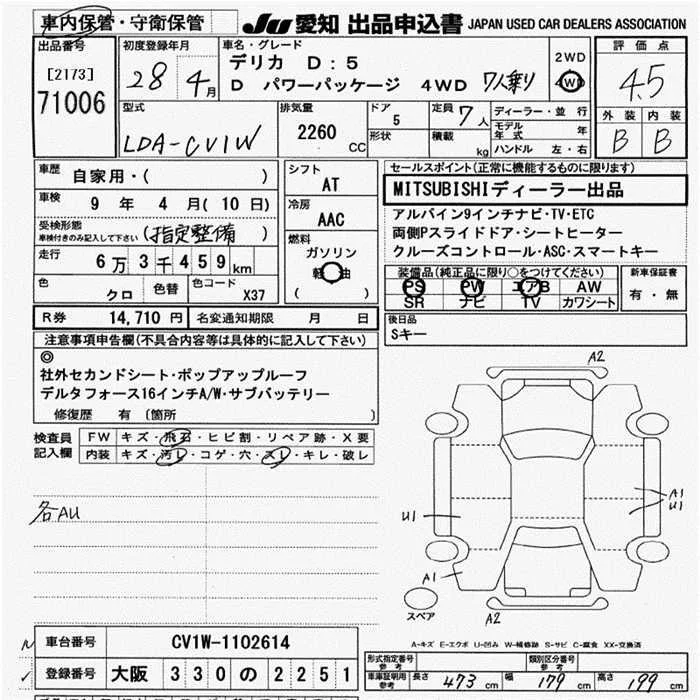 車内保管・守衛保管
JU 愛知 出品申込書 JAPAN USED CAR DEALERS ASSOCIATION
出品番号
[2173]
71006
初度登録年月
28 4月
車名・グレード
デリカ D:5
D パワーパッケージ 4WD 7人乗り
2WD
4WD
評価点
4.5
外装 内装
B B
型式
LDA-CV1W
排気量
2260 CC
ドア
5
形状
定員 7人
積載 kg
ディーラー・並行
モデル年式 年
ハンドル 左・右
車歴
自家用・( )
車検
9 年 4 月 (10 日)
受検形態
車検付きのみ記入して下さい
(指定整備)
走行
6万3千459km
色
クロ
色替
色コード
X37
シフト
AT
冷房
AAC
燃料
ガソリン
軽油
( )
セールスポイント(正常に機能するものに限ります)
MITSUBISHIディーラー出品
アルパイン9インチナビ・TV・ETC
両側Pスライドドア・シートヒーター
クルーズコントロール・ASC・スマートキー
装備品(純正品に限り○をつけてください)
PS PW エアB AW
SR ナビ TV カワシート
新車保証書
有・無
R券 14,710 円 名変通知期限 月 日
後日品
Sキー
注意事項申告欄(不具合内容等は具体的に記入して下さい)
◎
社外セカンドシート・ポップアップルーフ
デルタフォース16インチA/W・サブバッテリー
修復歴 有 (箇所 )
検査員記入欄
FW キズ・飛石・ヒビ割・リペア跡・X要
内装 キズ・汚レ・コゲ・穴・スレ・キレ・破レ
各AU
A2
A1
U1
U1
A1
スペア
A2
A-キズ E-エクボ U-凹み W-補修跡 S-サビ C-腐食 XX-交換済
車台番号 CV1W-1102614
登録番号 大阪 330の2251
形式指定番号 参考
類別区分番号 参考
車庫証明用 参考 長さ 473 cm 幅 179 cm 高さ 199 cm